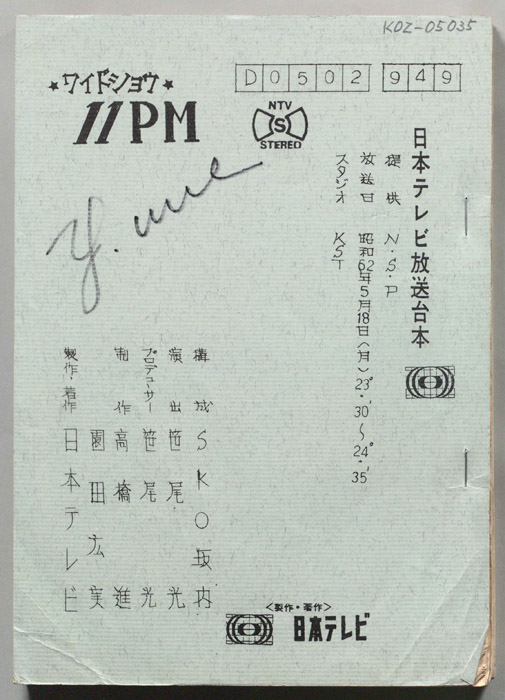 KDZ-05035
★ワイドショウ★
11PM
D0502 949
NTV
S
STEREO
日本テレビ放送台本
提供 N・S・P
放送日 昭和62年5月18日(月)23°・30′〜24°・35′
スタジオ KST
構成 SKO坂内
演出 笹尾 光
プロデューサー 笹尾 光
制作 高橋 進
園田広実
製作・著作 日本テレビ
<製作・著作>
日本テレビ